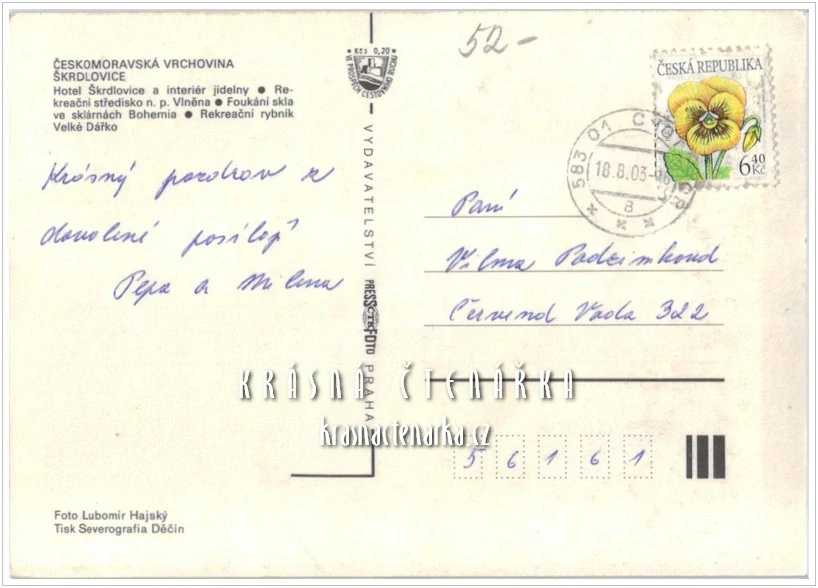 52-
ČESKOMORAVSKÁ VRCHOVINA
ŠKRDLOVICE
Hotel Škrdlovice a interiér jídelny ● Re-
kreační středisko n. p. Vlněna ● Foukání skla
ve sklárnách Bohemia ● Rekreační rybník
Velké Dářko
Kčs 0,20
VE PROSPĚCH CESTOVNÍHO RUCHU
ČESKÁ REPUBLIKA
6,40 Kč
583 01
18.8.03
a
Krásný pozdrav z
dovolené posílají
Pepa a Milena
Paní
Vilma Podzimková
Červená Voda 322
VYDAVATELSTVÍ PRESSFOTO PRAHA
KRÁSNÁ ČTENÁŘKA
krasnactenarka.cz
5 6 1 6 1
Foto Lubomír Hajský
Tisk Severografia Děčín